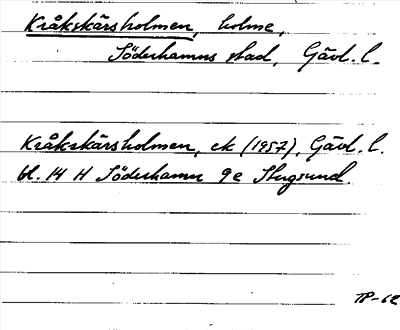 Kråkskärsholmen, holme,
Söderhamns stad, Gävl. l.
Kråkskärsholmen, ek (1957), Gävl. l.
bl. 14 H Söderhamn 9e Stugsund.
TP-62